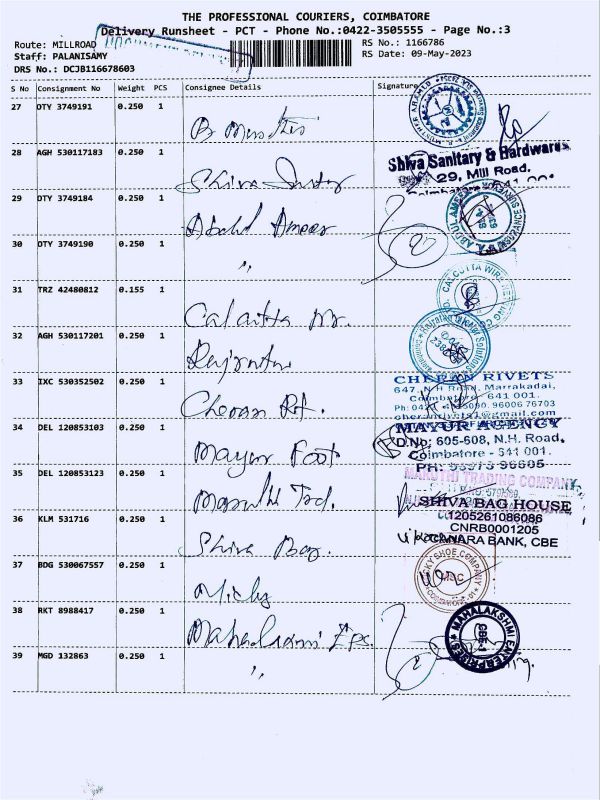 THE PROFESSIONAL COURIERS, COIMBATORE
Delivery Runsheet - PCT - Phone No.:0422-3505555 - Page No.:3
Route: MILLROAD
RS No.: 1166786
Staff: PALANISAMY
RS Date: 09-May-2023
DRS No.: DCJB116678603
S No Consignment No Weight PCS Consignee Details Signature
27 DTY 3749191 0.250 1
28 AGH 530117183 0.250 1 Shiva
Shiva Sanitary & Hardwares
29, Mill Road.
29 DTY 3749184 0.250 1 Abdul Ameer
ABDUL AMEER
30 DTY 3749190 0.250 1 "
31 TRZ 42480812 0.155 1 Calcutta
CALCUTTA WIRE NETTING CO.
32 AGH 530117201 0.250 1
33 IXC 530352502 0.250 1 Cheran Rt.
CHERAN RIVETS
647, N H Road, Marrakadai,
Coimbatore 641 001.
34 DEL 120853103 0.250 1 Mayur Foot
MAYUR AGENCY
D.No: 605-608, N.H. Road,
Coimbatore - 641 001.
35 DEL 120853123 0.250 1 Maruthi Trd.
MARUTHI TRADING COMPANY
36 KLM 531716 0.250 1 Shiva Bag.
SHIVA BAG HOUSE
1205261086086
CNRB0001205
CANARA BANK, CBE
37 BDG 530067557 0.250 1
38 RKT 8988417 0.250 1
MAHALAKSHMI ENTERPRISES
CBE-1
39 MGD 132863 0.250 1 "